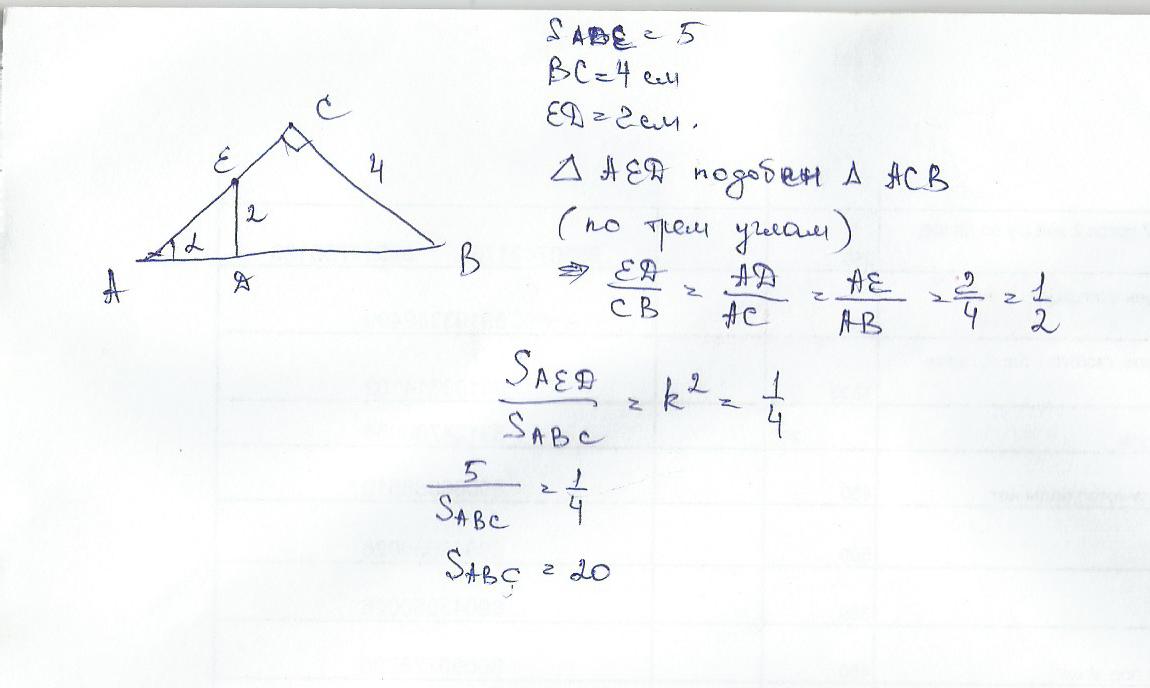 S ADE = 5
BC = 4 см
ED = 2 см.
△ AED подобен △ ACB
(по трем углам)
⇒ ED/CB = AD/AC = AE/AB = 2/4 = 1/2
S AED / S ABC = k² = 1/4
5 / S ABC = 1/4
S ABC = 20
C
E
4
2
α
A
D
B